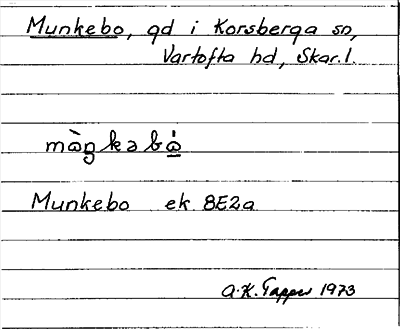 Munkebo, gd i Korsberga sn,
Vartofta hd, Skar.l.
mo᷆ŋkabò̱
Munkebo ek 8E2a
A.K. Tapper 1973